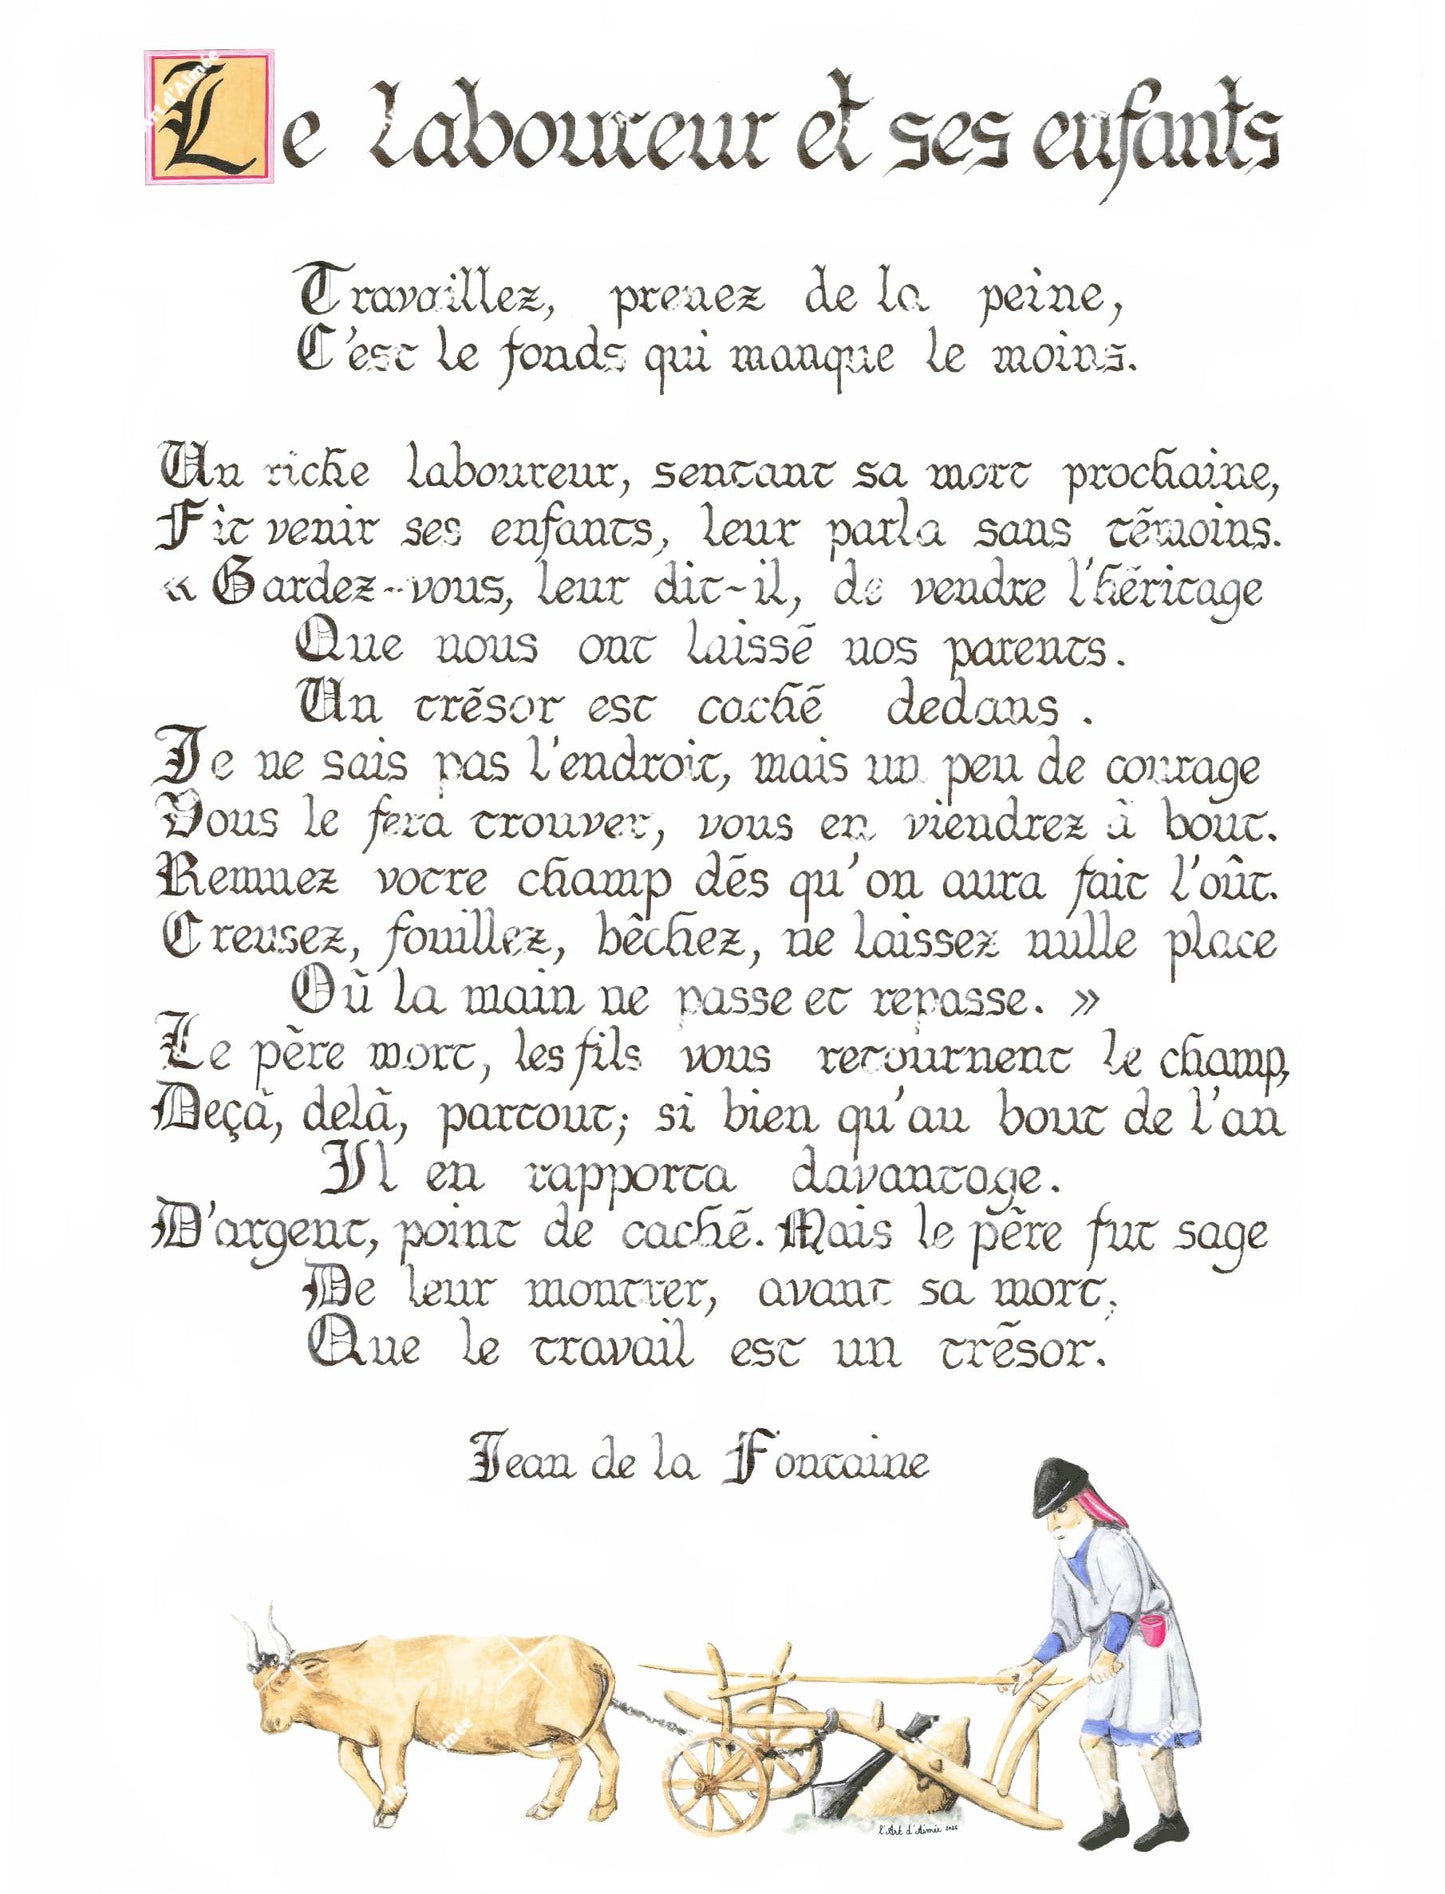 Le laboureur et ses enfants
Travaillez, prenez de la peine,
C'est le fonds qui manque le moins.
Un riche laboureur, sentant sa mort prochaine,
Fit venir ses enfants, leur parla sans témoins.
« Gardez-vous, leur dit-il, de vendre l'héritage
Que nous ont laissé nos parents.
Un trésor est caché dedans.
Je ne sais pas l'endroit, mais un peu de courage
Vous le fera trouver, vous en viendrez à bout.
Remuez votre champ dès qu'on aura fait l'oût.
Creusez, fouillez, bêchez, ne laissez nulle place
Où la main ne passe et repasse. »
Le père mort, les fils vous retournent le champ,
Deçà, delà, partout; si bien qu'au bout de l'an
Il en rapporta davantage.
D'argent, point de caché. Mais le père fut sage
De leur montrer, avant sa mort,
Que le travail est un trésor.
Jean de la Fontaine
l'Art d'Aimée